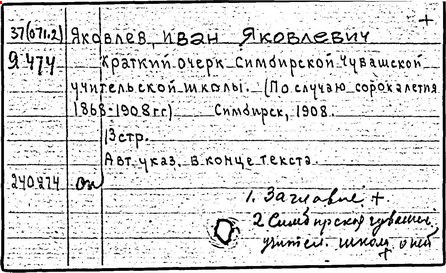 +
37(071.2) Яковлев, Иван Яковлевич
Я 474 Краткий очерк Симбирской Чувашской
учительской школы. (По случаю сорокалетия
1868-1908гг) Симбирск, 1908.
13стр.
Авт. указ. в конце текста.
240274 оп
1. Заглавие +
2 Симбирская чуваш.
учител. школа, о ней
+